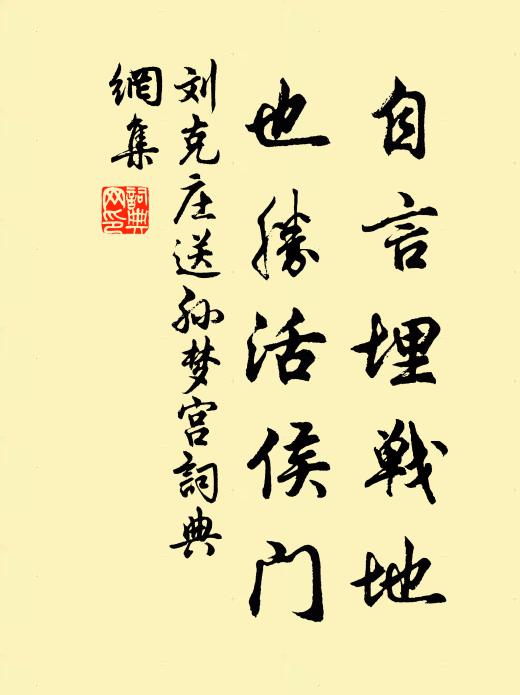 自言埋戦地
也勝活侯门
刘克庄送孙梦宫詞典
網集
詞典网印